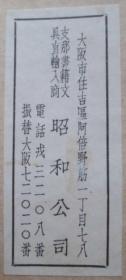 大阪市住吉區阿倍野筋一丁目七八
支那書籍文
具直輸入商
昭和公司
電話戎三二〇八番
振替大阪七二〇二〇番